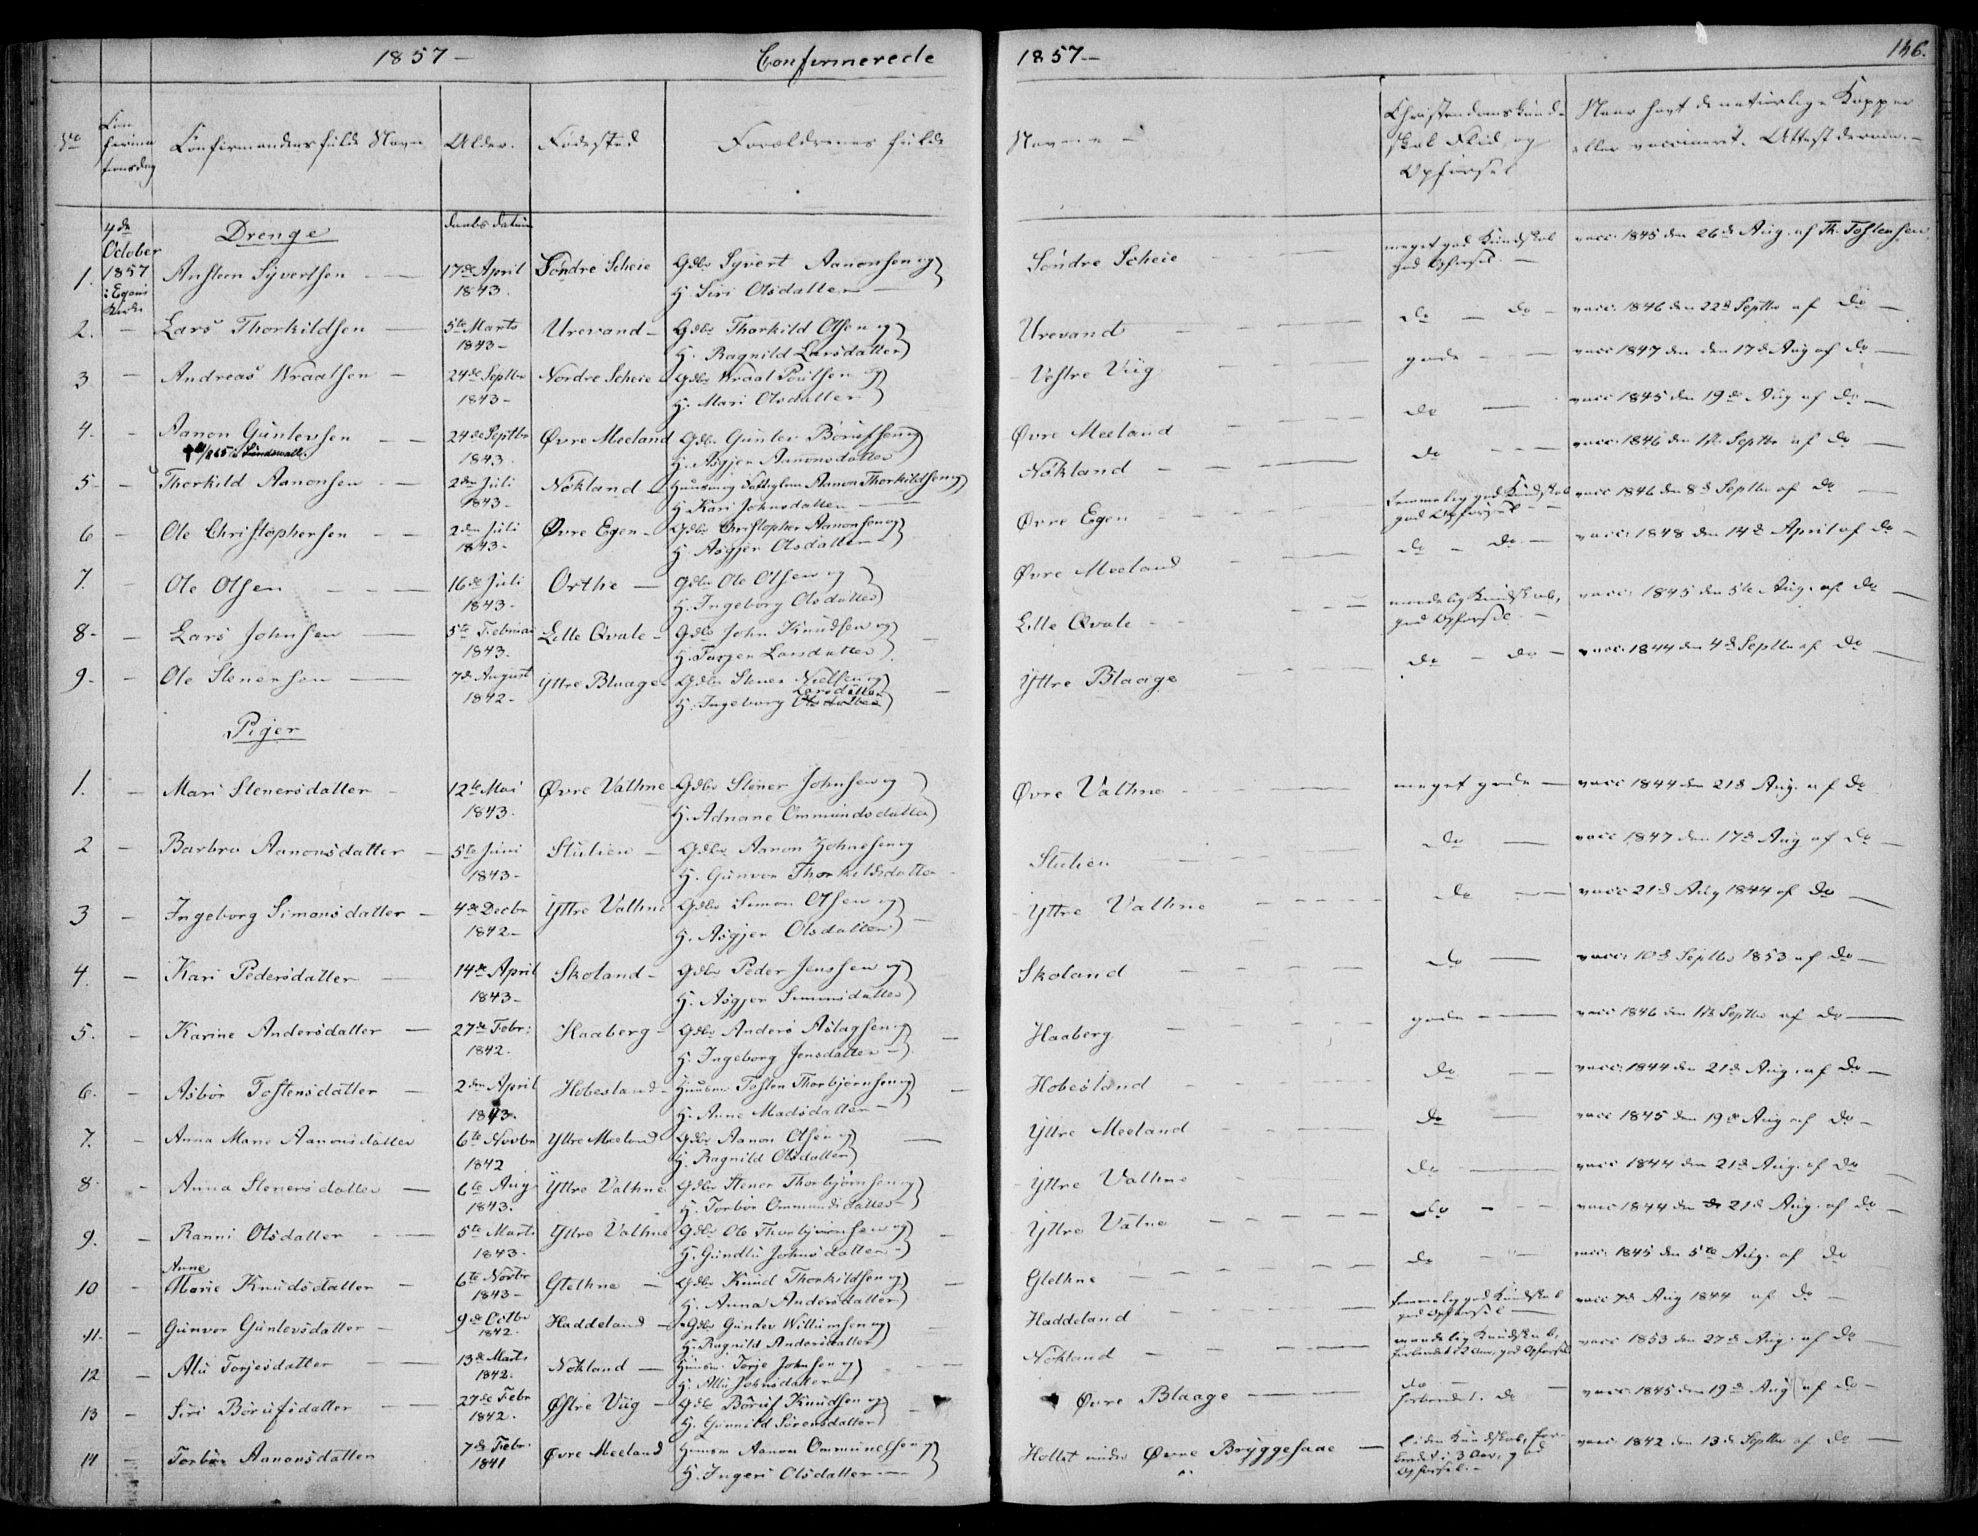 1857 – Confirmerede
1857.– 146.
No Confirmationsdag Confirmandens fulde Navn Alder. Födested Forældrenes fulde
Navne – Christendomskundskab Flid og Opførsel Naar havt de naturlige Kopper eller vaccineret. Attest derom. –
4de October 1857 i Egens Kirke
Drenge
daabs datum
1. Anstem Syvertsen 17de April 1843. Söndre Scheie Gdbr Syvert Aanonsen og H. Siri Olsdatter Söndre Scheie meget god Kundskab god Opførsel. – vacc. 1845 den 26de Aug. af Th. Tostensen
2. Lars Thorkildsen 5te Marts 1843 – Urevand – Gdbr Thorkild Olsen og H. Ragnild Larsdatter Urevand do – do – vacc. 1846 den 22de Septbr af do –
3 Andreas Wraalsen 24de Septbr 1843 – Nordre Scheie Gdbr Wraal Poulsen og H. Mari Olsdatter Vestre Viig gode – vacc 1847 den den 17de Aug af do
4. Aanon Guntevsen 24de Septbr 1843. Øvre Meeland Gdbr Guntev Börufsen og H. Asgjer Aanonsdatter Øvre Meeland do – vacc. 1845 den 19de Aug af do –
5 – Thorkild Aanonsen 2den Juli 1843 – Nökland Aanon Thorkildsen og H. Kari Johnsdatter Nökland do vacc. 1846 den Septbr af do
6 – Ole Christophersen 2den Juli 1843 – Øvre Egen – Gdbr Christopher Aanonsen og H. Asgjer Olsdatter Øvre Egen temmelig god Kundskab god Opførsel – vacc 1846 den 8de Septbr af do
7. Ole Olsen 16de Juli 1843 – Orthe Gdbr Ole Olsen og H. Ingeborg Olsdatter Øvre Meeland do – do. – vacc. 1848 den 14de April af do –
8 – Lars Johnsen 5te Februar 1843. Lille Qvale – Gdbr John Knudsen og H. Tarjer Larsdatter Lille Qvale maadelig Kundskab, god Opførsel – vacc. 1845 den 5te Aug. af do
9 – Ole Stenersen 7de August 1842 – Yttre Blaage Gdbr Stener Nielsen og H. Ingeborg Larsdatter Yttre Blaage do – do – vacc. 1844 den 4de Septbr af do
Piger
1. Mari Stenersdatter 12te Mai 1843. Øvre Vathne Gdbr Stener Johnsen og H. Adriane Ommundsdatter Øvre Vathne meget gode – vacc 1844 den 21de Aug. af do
2 – Barbro Aanonsdatter – 5te Juni 1843 – Stulien – Gdbr Aanon Johnsen og H. Gunvor Thorkildsdatter Stulien do – vacc 1847 den 17de Aug af do –
3 – Ingeborg Simonsdatter – 4de Decbr 1842 – Yttre Vathne Gdbr Simon Olsen og H. Asgjer Olsdatter Yttre Vathne do vacc 21de Aug 1844 af do –
4. – Kari Pedersdatter 14de April 1843 – Skoland – Gdbr Peder Jenssen og H. Asgjer Simonsdatter Skoland do – vacc: 10de Septbr 1853 af do –
5. – Karine Andersdatter – 27de Febr: 1842. Haaberg – Gdbr Anders Aslagsen og H. Ingeborg Jensdatter – Haaberg gode – vacc 1846 den Septbr af do –
6. – Asbör Tostensdatter – 2den April 1843. Hobesland – Huusm Tosten Thorbjörnsen og H. Anne Madsdatter – Hobesland do – vacc. 1844 den 21de Aug. af do –
7. – Anna Marie Aanonsdatter 6te Novbr 1842 Yttre Meeland Gdbr Aanon Olsen og H. Ragnild Olsdatter Yttre Meeland do – vacc 1845 den 19de Aug af do –
8. – Anna Stenersdatter – 6te Aug 1843. Yttre Vathne Gdbr Stener Thorbjörnsen og H. Torbör Ommundsdatter – Yttre Vathne do – vacc 1844 den 21de Aug. af do –
9. – Ranni Olsdatter 5te Marts 1843. Yttre Vathne Gdbr Ole Thorbjörnsen og H. Gundlu Johnsdatter – Yttre Vatne do – vacc 1844 den 21de Aug. af do –
10 – Anne Marie Knudsdatter – 6te Novbr 1843 – Glethne Gdbr Knud Thorkildsen og H. Anna Andersdatter Glethne do – vacc. 1845 den 5te Aug. af do
11. – Gunvor Guntevsdatter – 9de Octbr 1842. Haddeland – Gdbr Guntev Willumsen og H. Ragnild Andersdatter Haddeland temmelig god Kundskab god Opførsel – vacc 7de Aug 1844 af do –
12 – Alu Torjesdatter 13de Marts 1842. Nökland – Huusm. Torje Johnsen og H. Allu Johnsdatter Nökland maadelig Kundskab, forberedet i 2 Aar, god Opførsel vacc. 1853 den 27de Aug. af do
13 – Siri Börufsdatter 27de Febr 1842. Østre Viig – Gdbr Böruf Knudsen og H. Gunnild Sörensdatter Øvre Blaage do forberedet. do vacc. 1845 den 19de Aug af do –
14 – Torbör Aanonsdatter 7de Febr. 1841 Øvre Meeland Huusm Aanon Ommundsen og H. Ingeri Olsdatter – Hollet under Øvre Bryggesaae – liden Kundskab, forberedet i 3 Aar, god Opførsel. – vacc. 1842 den 13de Septbr af do –